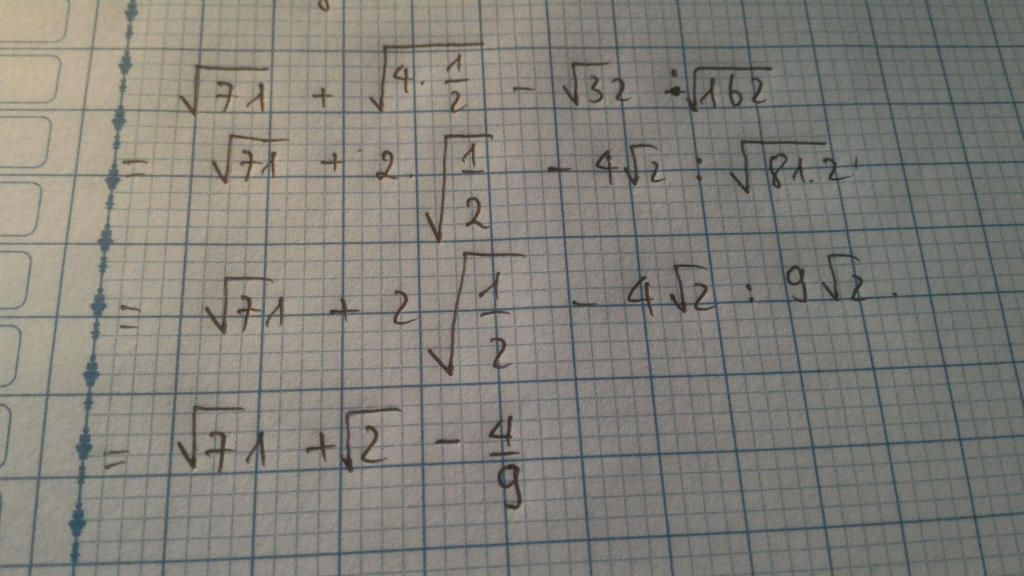 √71 + √(4 · 1/2) - √32 : √162
= √71 + 2 · √(1/2) - 4√2 : √(81.2)
= √71 + 2 √(1/2) - 4√2 : 9√2 .
= √71 + √2 - 4/9